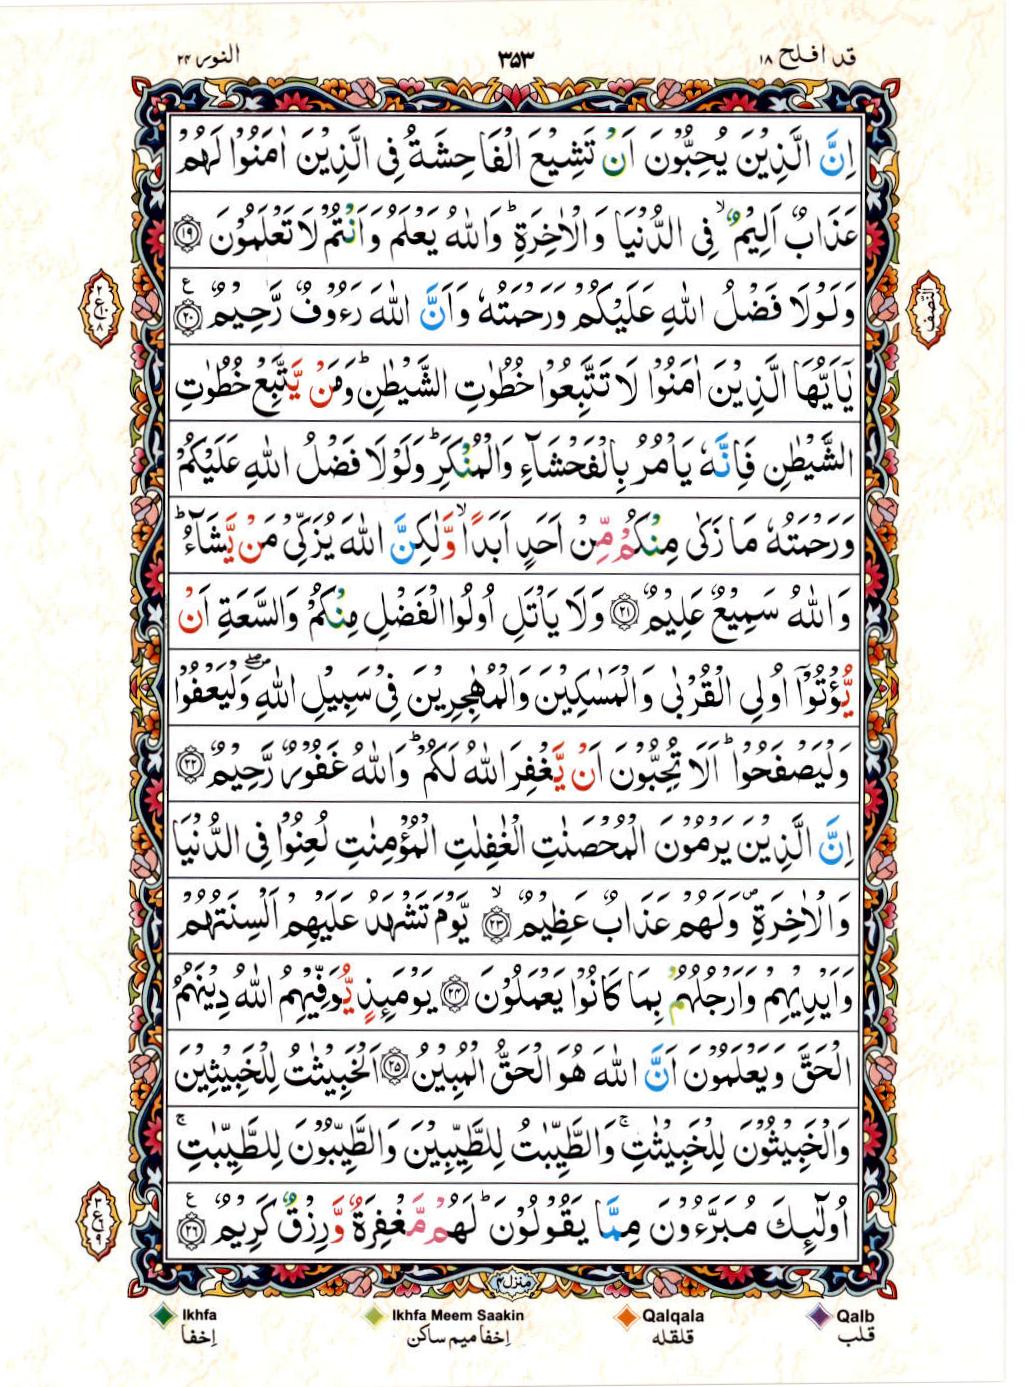 قد افلح ۱۸
۳۵۳
النور ۲۴
اِنَّ الَّذِيْنَ يُحِبُّوْنَ اَنْ تَشِيْعَ الْفَاحِشَةُ فِى الَّذِيْنَ اٰمَنُوْا لَهُمْ
عَذَابٌ اَلِيْمٌ ۙ فِى الدُّنْيَا وَالْاٰخِرَةِ ؕ وَاللّٰهُ يَعْلَمُ وَاَنْتُمْ لَا تَعْلَمُوْنَ ﴿۱۹﴾
وَلَوْلَا فَضْلُ اللّٰهِ عَلَيْكُمْ وَرَحْمَتُهٗ وَاَنَّ اللّٰهَ رَءُوْفٌ رَّحِيْمٌ ﴿۲۰﴾ ع
يٰۤاَيُّهَا الَّذِيْنَ اٰمَنُوْا لَا تَتَّبِعُوْا خُطُوٰتِ الشَّيْطٰنِ ؕ وَمَنْ يَّتَّبِعْ خُطُوٰتِ
الشَّيْطٰنِ فَاِنَّهٗ يَاْمُرُ بِالْفَحْشَآءِ وَالْمُنْكَرِ ؕ وَلَوْلَا فَضْلُ اللّٰهِ عَلَيْكُمْ
وَرَحْمَتُهٗ مَا زَكٰى مِنْكُمْ مِّنْ اَحَدٍ اَبَدًا ۙ وَّلٰكِنَّ اللّٰهَ يُزَكِّىْ مَنْ يَّشَآءُ ؕ
وَاللّٰهُ سَمِيْعٌ عَلِيْمٌ ﴿۲۱﴾ وَلَا يَاْتَلِ اُولُوا الْفَضْلِ مِنْكُمْ وَالسَّعَةِ اَنْ
يُّؤْتُوْۤا اُولِى الْقُرْبٰى وَالْمَسٰكِيْنَ وَالْمُهٰجِرِيْنَ فِىْ سَبِيْلِ اللّٰهِ ۖ وَلْيَعْفُوْا
وَلْيَصْفَحُوْا ؕ اَلَا تُحِبُّوْنَ اَنْ يَّغْفِرَ اللّٰهُ لَكُمْ ؕ وَاللّٰهُ غَفُوْرٌ رَّحِيْمٌ ﴿۲۲﴾
اِنَّ الَّذِيْنَ يَرْمُوْنَ الْمُحْصَنٰتِ الْغٰفِلٰتِ الْمُؤْمِنٰتِ لُعِنُوْا فِى الدُّنْيَا
وَالْاٰخِرَةِ ۪ وَلَهُمْ عَذَابٌ عَظِيْمٌ ۙ ﴿۲۳﴾ يَّوْمَ تَشْهَدُ عَلَيْهِمْ اَلْسِنَتُهُمْ
وَاَيْدِيْهِمْ وَاَرْجُلُهُمْ بِمَا كَانُوْا يَعْمَلُوْنَ ﴿۲۴﴾ يَوْمَئِذٍ يُّوَفِّيْهِمُ اللّٰهُ دِيْنَهُمُ
الْحَقَّ وَيَعْلَمُوْنَ اَنَّ اللّٰهَ هُوَ الْحَقُّ الْمُبِيْنُ ﴿۲۵﴾ اَلْخَبِيْثٰتُ لِلْخَبِيْثِيْنَ
وَالْخَبِيْثُوْنَ لِلْخَبِيْثٰتِ ۚ وَالطَّيِّبٰتُ لِلطَّيِّبِيْنَ وَالطَّيِّبُوْنَ لِلطَّيِّبٰتِ ۚ
اُولٰٓئِكَ مُبَرَّءُوْنَ مِمَّا يَقُوْلُوْنَ ؕ لَهُمْ مَّغْفِرَةٌ وَّرِزْقٌ كَرِيْمٌ ﴿۲۶﴾ ع
النّصف
۲
ع
۸
منزل ۴
Ikhfa
اِخفا
Ikhfa Meem Saakin
اِخفا ميم ساكن
Qalqala
قلقله
Qalb
قلب